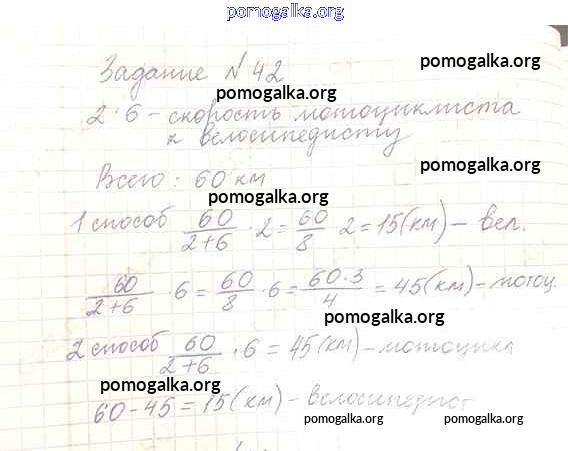 pomogalka.org
Задание № 42
pomogalka.org
pomogalka.org
2 · 6 - скорость мотоциклиста
к велосипедисту
pomogalka.org
pomogalka.org
Всего: 60 км
pomogalka.org
1 способ 60/2+6 · 2 = 60/8 2 = 15 (км) - вел.
60/2+6 · 6 = 60/8 · 6 = 60·3/4 = 45 (км) - мотоц.
pomogalka.org
2 способ 60/2+6 · 6 = 45 (км) - мотоцикл
pomogalka.org
60 - 45 = 15 (км) - велосипедист
pomogalka.org
pomogalka.org